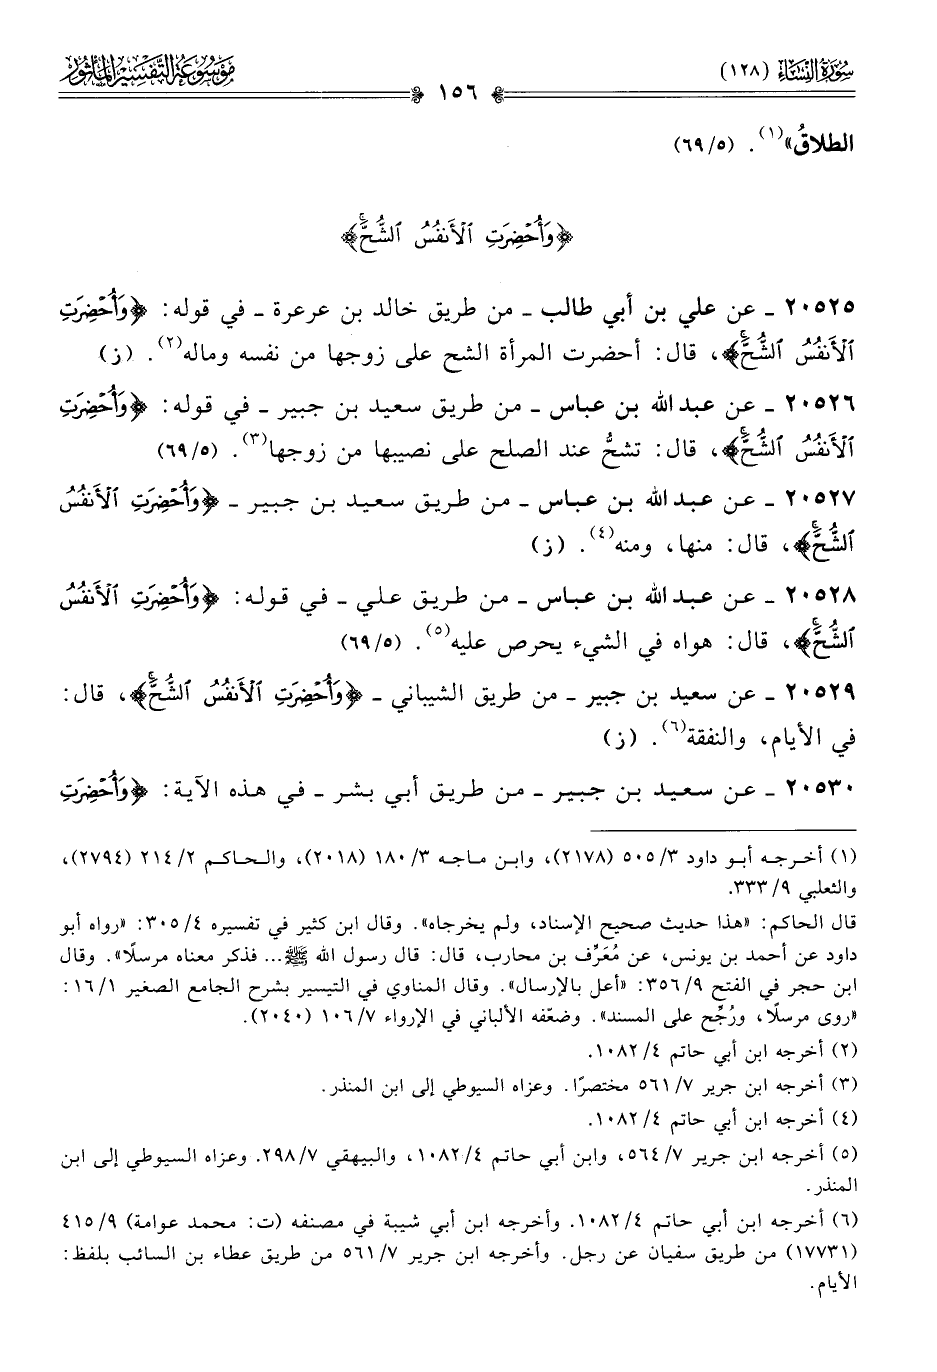 سورة النساء (١٢٨)
موسوعة التفسير المأثور
١٥٦
الطلاقُ»(١). (٦٩/٥)
﴿وَأُحْضِرَتِ ٱلْأَنفُسُ ٱلشُّحَّۚ﴾
٢٠٥٢٥ ـ عن علي بن أبي طالب ـ من طريق خالد بن عرعرة ـ في قوله: ﴿وَأُحْضِرَتِ
ٱلْأَنفُسُ ٱلشُّحَّۚ﴾، قال: أحضرت المرأة الشح على زوجها من نفسه وماله(٢). (ز)
٢٠٥٢٦ ـ عن عبد الله بن عباس ـ من طريق سعيد بن جبير ـ في قوله: ﴿وَأُحْضِرَتِ
ٱلْأَنفُسُ ٱلشُّحَّۚ﴾، قال: تشحُّ عند الصلح على نصيبها من زوجها(٣). (٦٩/٥)
٢٠٥٢٧ ـ عن عبد الله بن عباس ـ من طريق سعيد بن جبير ـ ﴿وَأُحْضِرَتِ ٱلْأَنفُسُ
ٱلشُّحَّۚ﴾، قال: منها، ومنه(٤). (ز)
٢٠٥٢٨ ـ عن عبد الله بن عباس ـ من طريق علي ـ في قوله: ﴿وَأُحْضِرَتِ ٱلْأَنفُسُ
ٱلشُّحَّۚ﴾، قال: هواه في الشيء يحرص عليه(٥). (٦٩/٥)
٢٠٥٢٩ ـ عن سعيد بن جبير ـ من طريق الشيباني ـ ﴿وَأُحْضِرَتِ ٱلْأَنفُسُ ٱلشُّحَّۚ﴾، قال:
في الأيام، والنفقة(٦). (ز)
٢٠٥٣٠ ـ عن سعيد بن جبير ـ من طريق أبي بشر ـ في هذه الآية: ﴿وَأُحْضِرَتِ
(١) أخرجه أبو داود ٥٠٥/٣ (٢١٧٨)، وابن ماجه ١٨٠/٣ (٢٠١٨)، والحاكم ٢١٤/٢ (٢٧٩٤)،
والثعلبي ٣٣٣/٩.
قال الحاكم: «هذا حديث صحيح الإسناد، ولم يخرجاه». وقال ابن كثير في تفسيره ٣٠٥/٤: «رواه أبو
داود عن أحمد بن يونس، عن مُعَرِّف بن محارب، قال: قال رسول الله ﷺ... فذكر معناه مرسلًا». وقال
ابن حجر في الفتح ٣٥٦/٩: «أعل بالإرسال». وقال المناوي في التيسير بشرح الجامع الصغير ١٦/١:
«روى مرسلًا، ورُجِّح على المسند». وضعّفه الألباني في الإرواء ١٠٦/٧ (٢٠٤٠).
(٢) أخرجه ابن أبي حاتم ١٠٨٢/٤.
(٣) أخرجه ابن جرير ٥٦١/٧ مختصرًا. وعزاه السيوطي إلى ابن المنذر.
(٤) أخرجه ابن أبي حاتم ١٠٨٢/٤.
(٥) أخرجه ابن جرير ٥٦٤/٧، وابن أبي حاتم ١٠٨٢/٤، والبيهقي ٢٩٨/٧. وعزاه السيوطي إلى ابن
المنذر.
(٦) أخرجه ابن أبي حاتم ١٠٨٢/٤. وأخرجه ابن أبي شيبة في مصنفه (ت: محمد عوامة) ٤١٥/٩
(١٧٧٣١) من طريق سفيان عن رجل. وأخرجه ابن جرير ٥٦١/٧ من طريق عطاء بن السائب بلفظ:
الأيام.